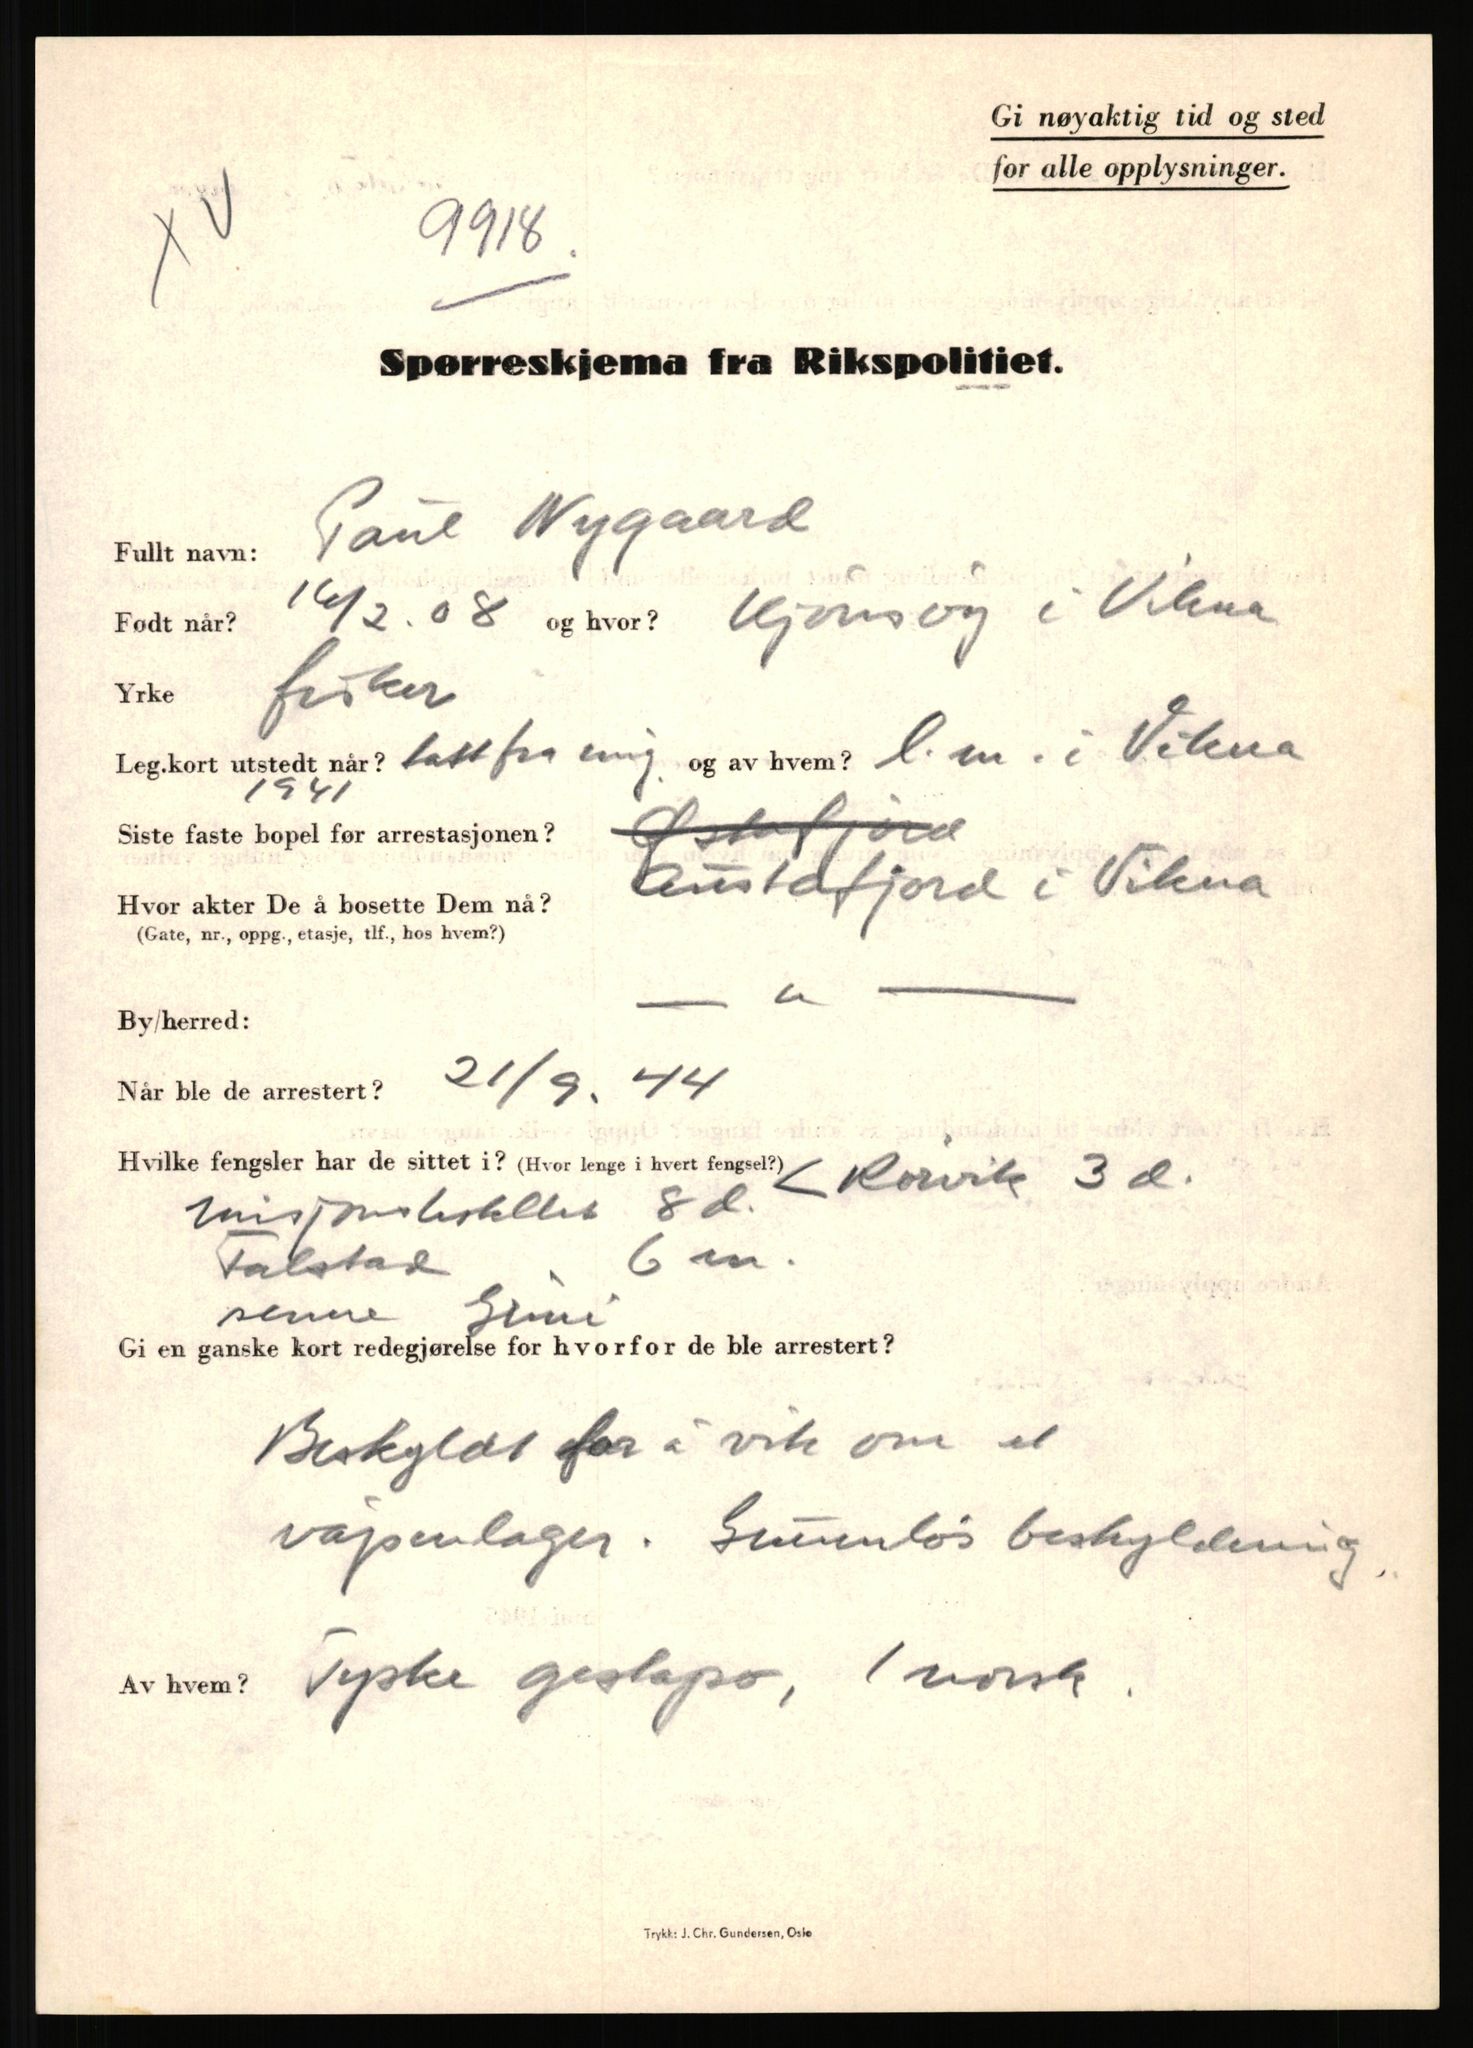 Gi nøyaktig tid og sted
for alle opplysninger.
X V
9918.
Spørreskjema fra Rikspolitiet.
Fullt navn: Paul Nygaard
Født når? 16/2.08 og hvor? i Vikna
Yrke fisker
Leg.kort utstedt når? tatt fra mig og av hvem? l.m. i Vikna
1941
Siste faste bopel før arrestasjonen? Østafjord
Austafjord i Vikna
Hvor akter De å bosette Dem nå?
(Gate, nr., oppg., etasje, tlf., hos hvem?)
— " —
By/herred:
Når ble de arrestert? 21/9. 44
Hvilke fengsler har de sittet i? (Hvor lenge i hvert fengsel?) < Rørvik 3 d.
misjonshotellet 8 d.
Falstad 6 m.
senere Grini
Gi en ganske kort redegjørelse for hvorfor de ble arrestert?
Beskyldt for å vite om et
våpenlager. Grunnløs beskyldning.
Av hvem? Tyske gestapo, 1 norsk.
Trykk: J. Chr. Gundersen, Oslo